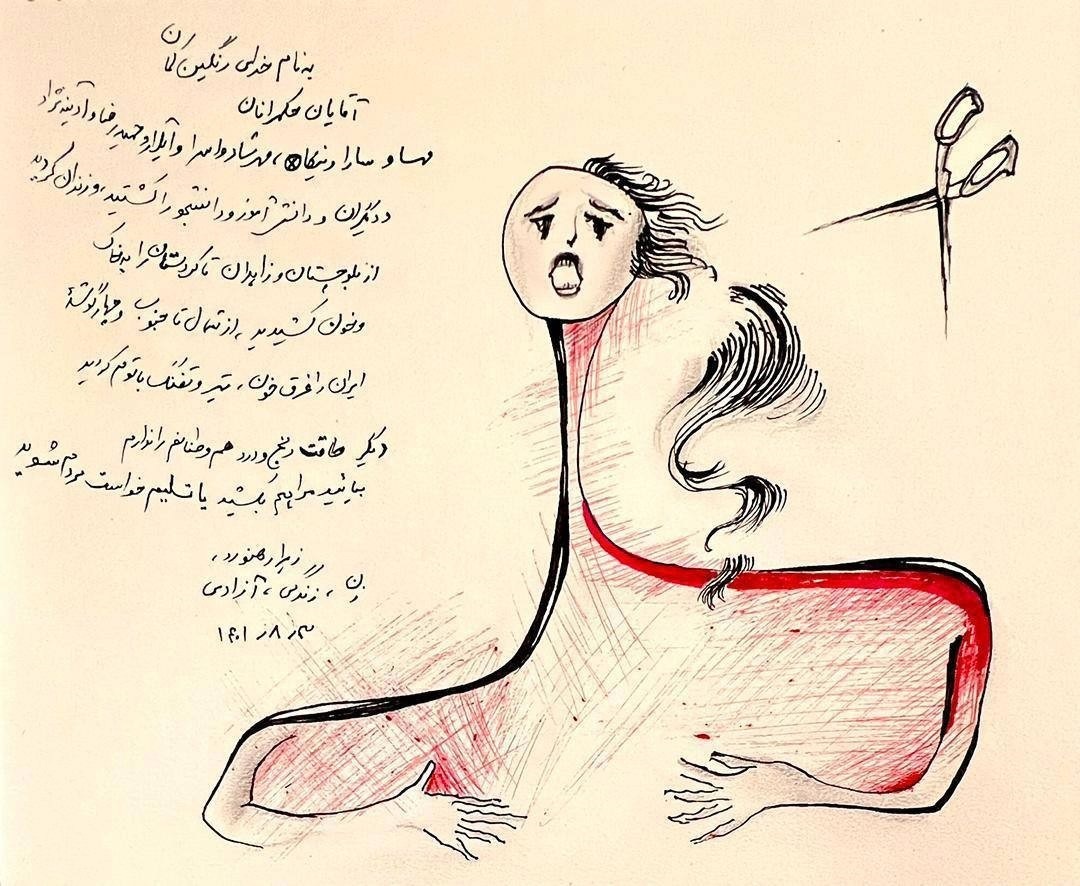 به نام خدای رنگین کمان
آقایان حکمرانان
مهسا و سارا و نیکا، مهرشاد و اسرا و آیلار و حمیدرضا و آدینه‌زاد
و دیگران و دانش آموز و دانشجو را کشتید، و زندان کردید
از بلوچستان و زاهدان تا کردستان را به خاک
و خون کشیدید، از شمال تا جنوب و چهارگوشهٔ
ایران را غرق خون، تیر و تفنگ باتوم کردید
دیگر طاقت رنج و درد هم وطنانم را ندارم
بیائید مرا هم بکشید یا تسلیم خواست مردم شوید
زهرا رهنورد،
زن، زندگی، آزادی
۱۴۰۱ ر ۸ ر